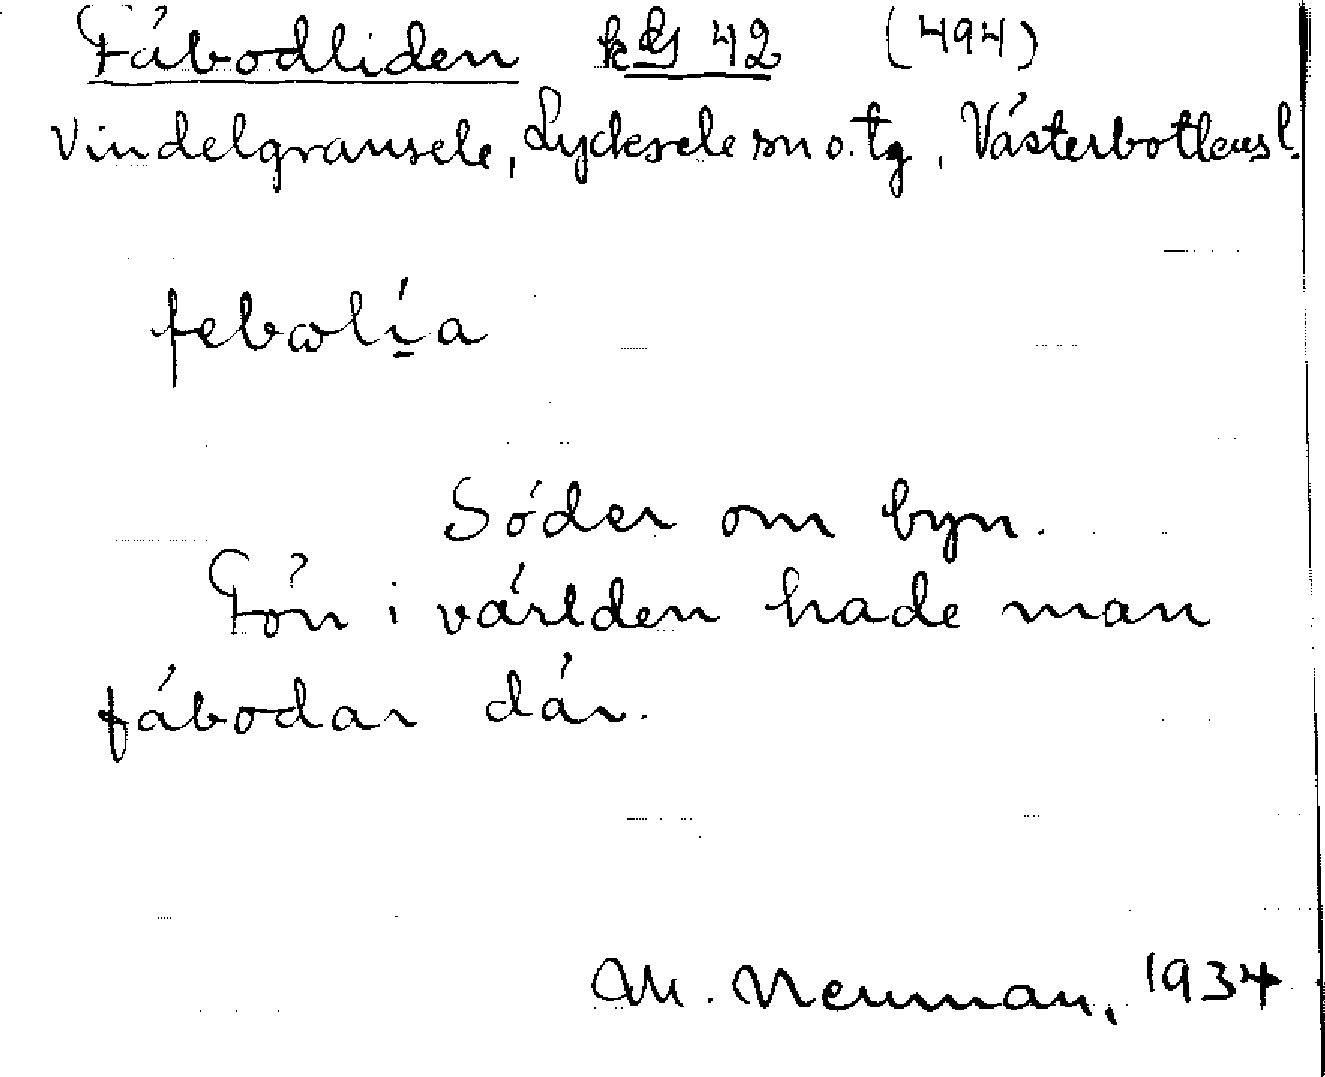 Fäbodliden kG 42 (494)
Vindelgransele, Lycksele sn o. tg, Västerbottens l.
febωlí̱a
Söder om byn.
Förr i världen hade man
fäbodar där.
M. Neuman, 1934